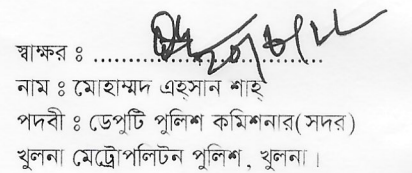 স্বাক্ষর ঃ ................................
নাম ঃ মোহাম্মদ এহ্সান শাহ্
পদবী ঃ ডেপুটি পুলিশ কমিশনার(সদর)
খুলনা মেট্রোপলিটন পুলিশ, খুলনা।